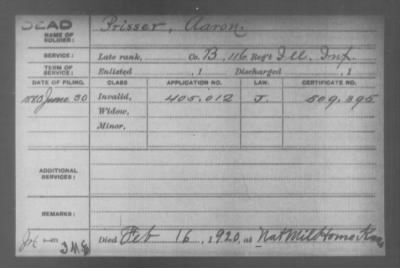 DEAD
NAME OF SOLDIER: Prisser, Aaron
SERVICE: Late rank, Co. B, 116 Reg't Ill. Inf.
TERM OF SERVICE: Enlisted , 1 Discharged , 1
DATE OF FILING. CLASS. APPLICATION NO. LAW. CERTIFICATE NO.
June 30 Invalid, 405.012 J. 509.395
Widow,
Minor,
ADDITIONAL SERVICES:
REMARKS:
Died Feb 16, 1920, at Nat Mil Home Kans